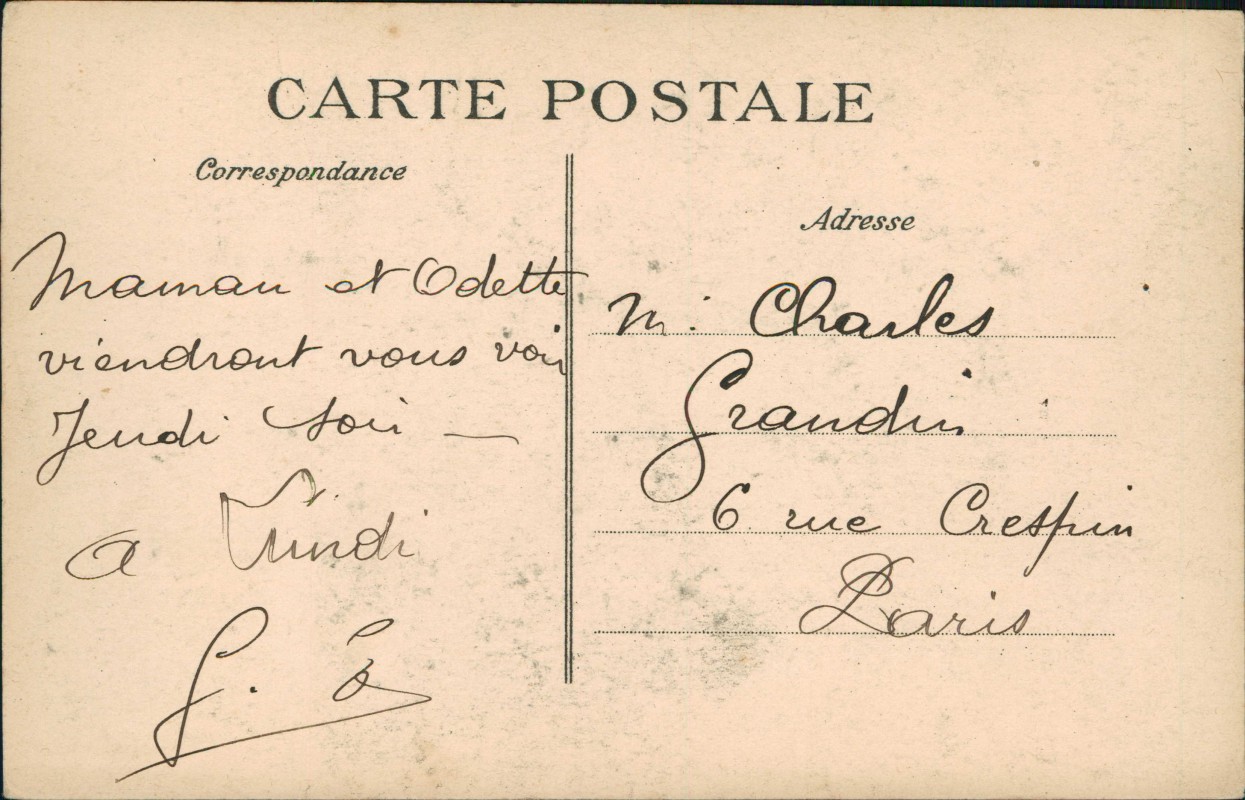 CARTE POSTALE
Correspondance
Adresse
Maman et Odette
viendront vous voir
Jeudi soir —
a Lundi
M. Charles
Grandin
6 rue Crespin
Paris